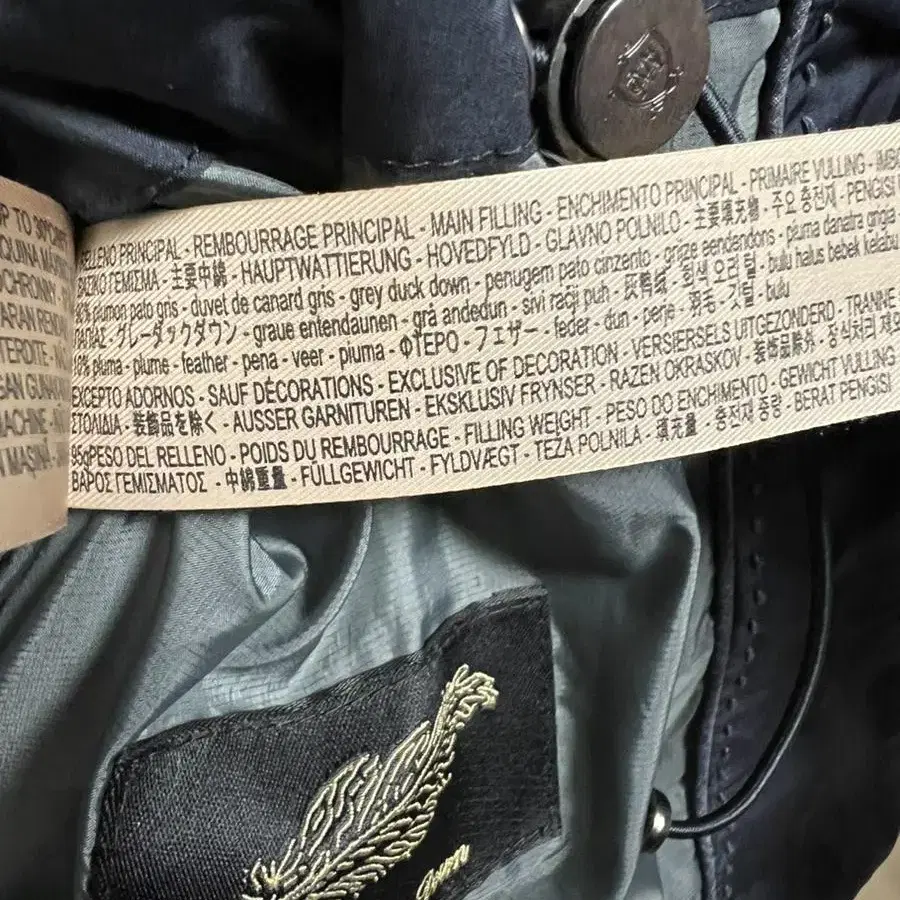 UP TO 30°C
RELLENO PRINCIPAL - REMBOURRAGE PRINCIPAL - MAIN FILLING - ENCHIMENTO PRINCIPAL - PRIMAIRE VULLING -
ΒΑΣΙΚΟ ΓΕΜΙΣΜΑ - 主要中綿 - HAUPTWATTIERUNG - HOVEDFYLD - GLAVNO POLNILO - 主要填充物 - 주요 충전재 - PENGISI
plumon pato gris - duvet de canard gris - grey duck down - penugem pato cinzento - grijze eendendons - piuma danatra grigia
グレーダックダウン - graue entendaunen - grå andedun - sivi racji puh - 灰鸭绒 - 회색 오리털 - bulu halus bebek kelabu
10% pluma - plume - feather - pena - veer - piuma - ΦΤΕΡΟ - フェザー - feder - dun - perje - 羽毛 - 깃털 - bulu
EXCEPTO ADORNOS - SAUF DÉCORATIONS - EXCLUSIVE OF DECORATION - VERSIERSELS UITGEZONDERD - TRANNE
ΣΤΟΛΙΔΙΑ - 装飾品を除く - AUSSER GARNITUREN - EKSKLUSIV FRYNSER - RAZEN OKRASKOV - 装饰品除外 - 장식처리 제외
95gPESO DEL RELLENO - POIDS DU REMBOURRAGE - FILLING WEIGHT - PESO DO ENCHIMENTO - GEWICHT VULLING
ΒΑΡΟΣ ΓΕΜΙΣΜΑΤΟΣ - 中綿重量 - FÜLLGEWICHT - FYLDVÆGT - TEŽA POLNILA - 填充量 - 충전재 중량 - BERAT PENGISI